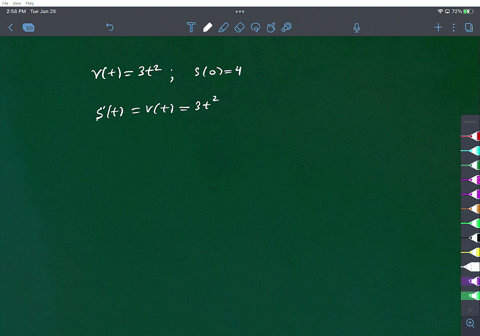 File View Help
2:58 PM Tue Jun 28
72%
v(t) = 3t² ; s(0) = 4
s'(t) = v(t) = 3t²